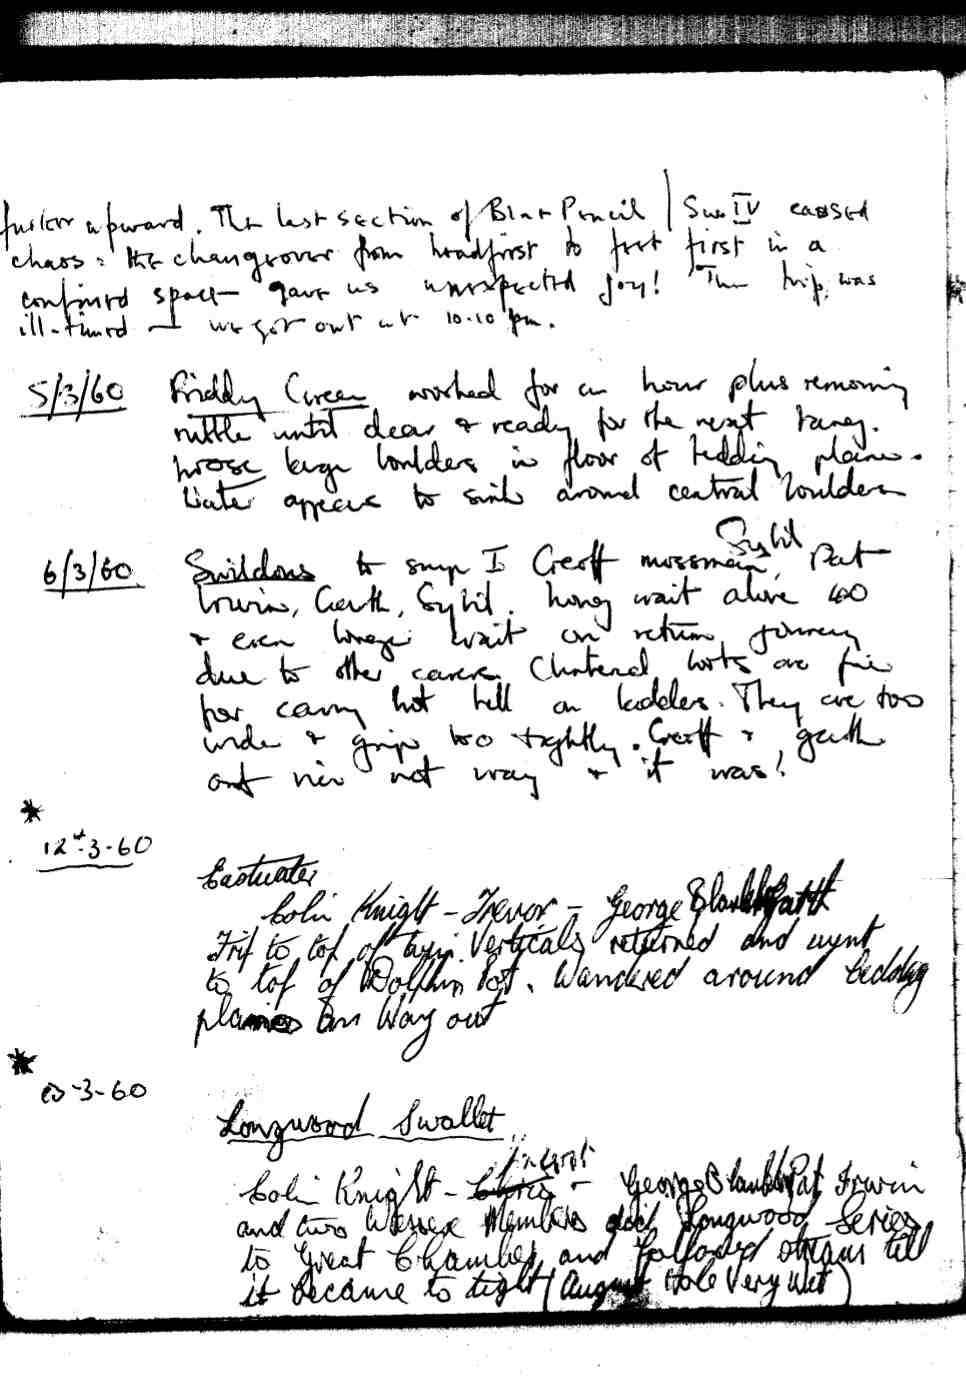 further upward. The last section of Blue Pencil / Swn IV caused
chaos: the changeover from headfirst to feet first in a
confined space gave us unexpected joy! The trip was
ill-timed — we got out at 10.10 pm.
5/3/60 Priddy Green worked for an hour plus removing
rubble until clear & ready for the next bang.
loose large boulders in floor of bedding plane.
Water appears to sink around central boulders
6/3/60 Swildons to sump I Geoff mossman, Sybil Pat
Irwin, Garth, Sybil. Long wait above 40
& even longer wait on return journey
due to other cavers. Chatered boots are fine
for caving but hell on ladders. They are too
wide & grip too tightly. Geoff & garth
out via wet way & it was!
*
12th-3-60
Eastwater
Colin Knight - Trevor - George Garth
Trip to top of twin Verticals returned and went
to top of Dolphin Pot. Wandered around bedding
planes on Way out
*
-3-60
Longwood Swallet
Colin Knight - - George Pat Irwin
and two Wessex Members did Longwood Series
to Great Chamber and followed stream till
it became to tight (August Hole Very Wet)